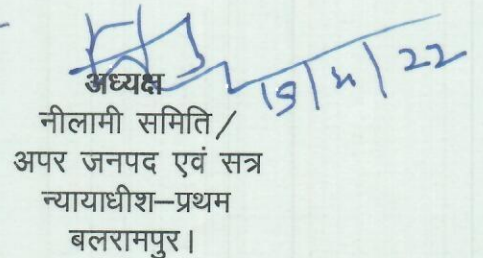 अध्यक्ष
नीलामी समिति /
अपर जनपद एवं सत्र
न्यायाधीश–प्रथम
बलरामपुर।